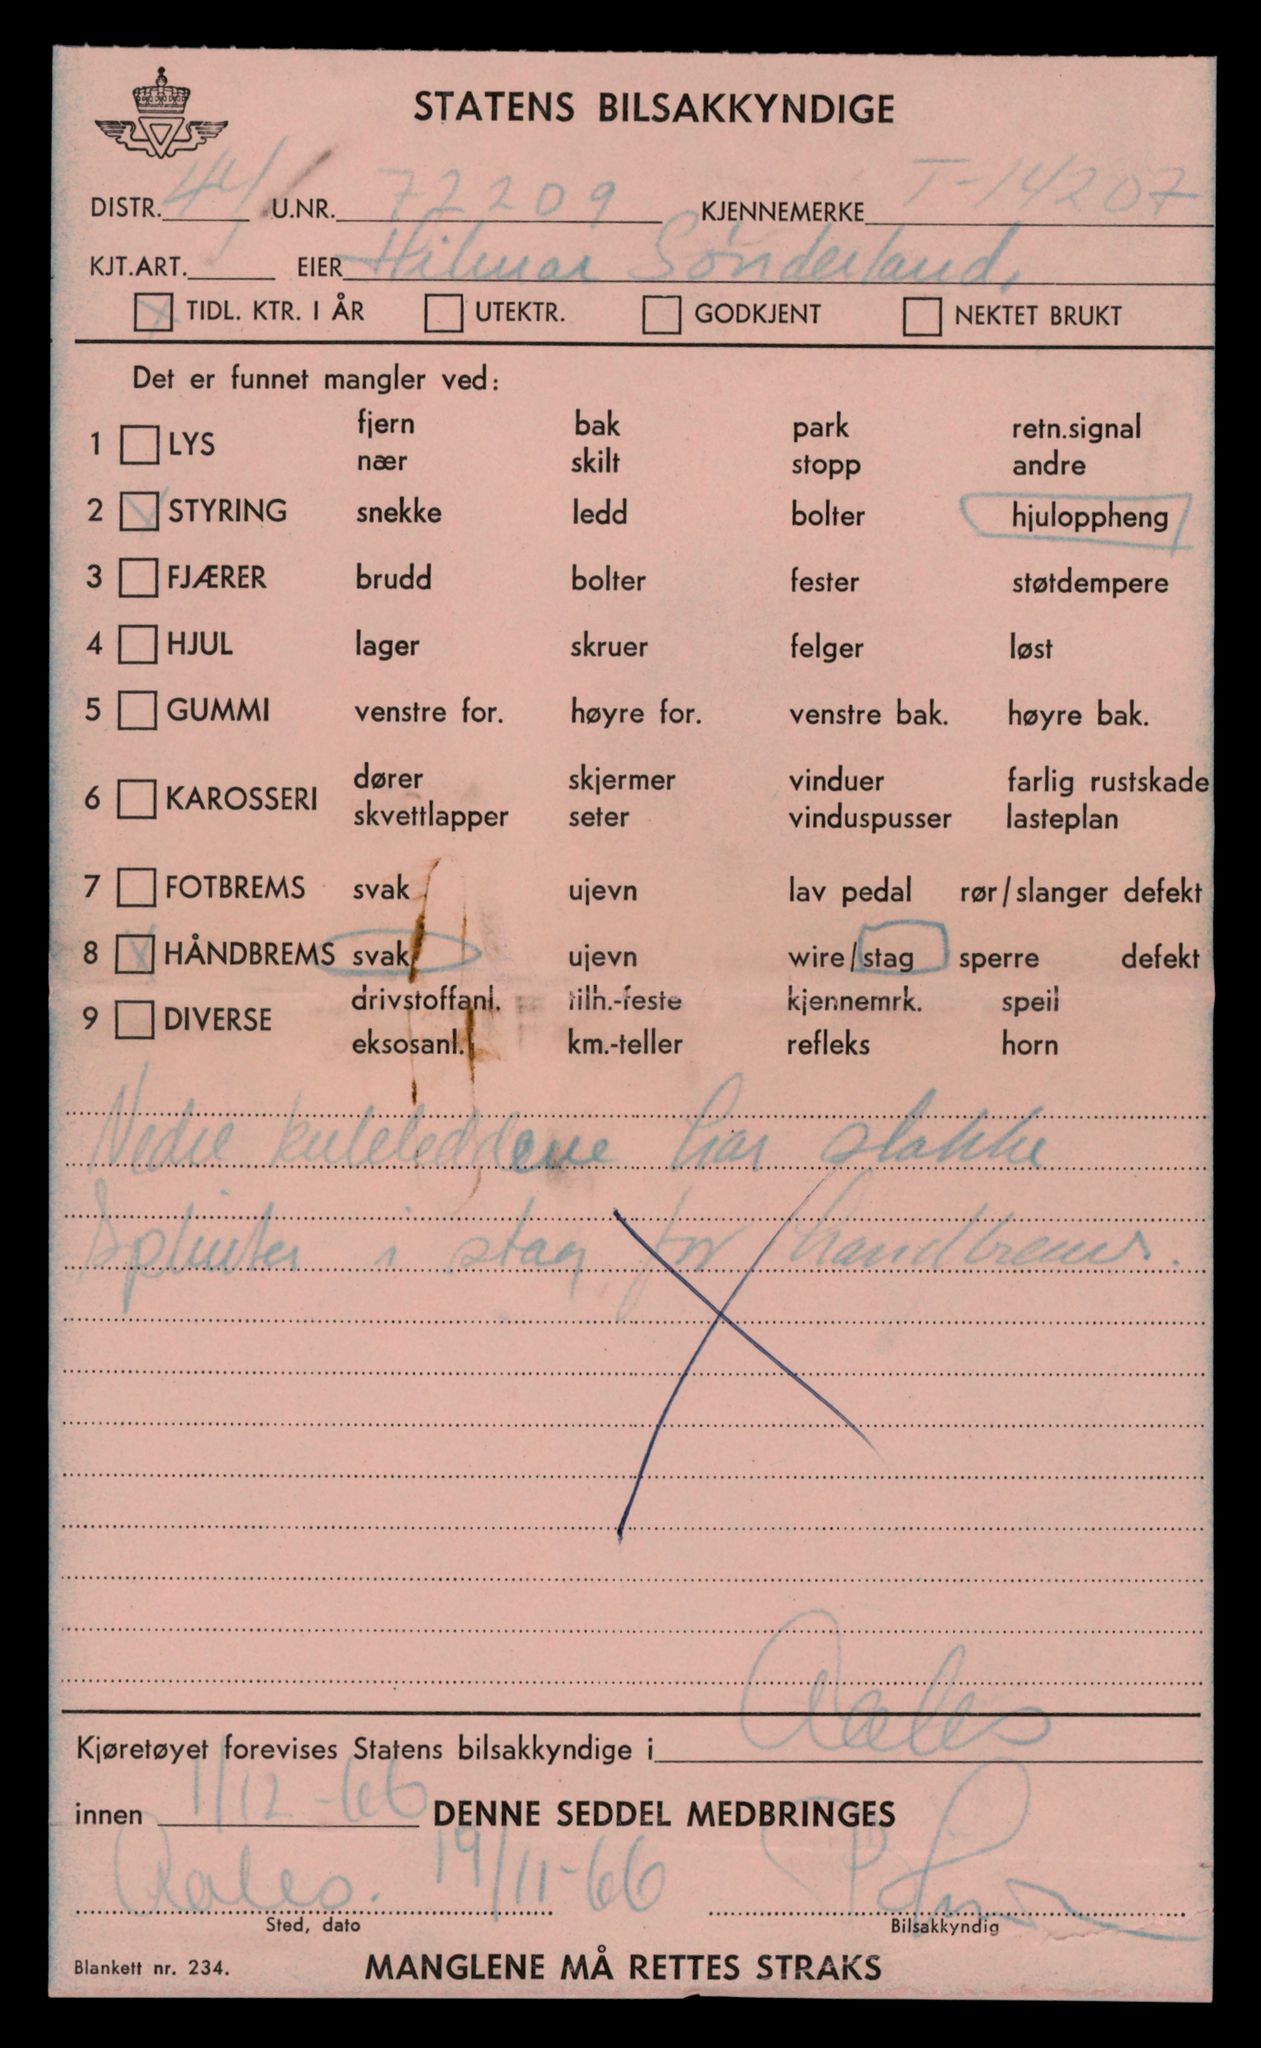 STATENS BILSAKKYNDIGE
DISTR. 44/ U.NR. 72209 KJENNEMERKE T-14207
KJT.ART. EIER Hilmar Sønderland.
TIDL. KTR. I ÅR UTEKTR. GODKJENT NEKTET BRUKT
Det er funnet mangler ved:
1 LYS fjern bak park retn.signal
nær skilt stopp andre
2 STYRING snekke ledd bolter hjuloppheng
3 FJÆRER brudd bolter fester støtdempere
4 HJUL lager skruer felger løst
5 GUMMI venstre for. høyre for. venstre bak. høyre bak.
6 KAROSSERI dører skjermer vinduer farlig rustskade
skvettlapper seter vinduspusser lasteplan
7 FOTBREMS svak ujevn lav pedal rør/slanger defekt
8 HÅNDBREMS svak ujevn wire/stag sperre defekt
9 DIVERSE drivstoffanl. tilh.-feste kjennemrk. speil
eksosanl. km.-teller refleks horn
Nedre kuleleddene har slakke
Splinter i stag for handbrems.
Kjøretøyet forevises Statens bilsakkyndige i Aales
innen 1/12-66 DENNE SEDDEL MEDBRINGES
Aales. 19/11-66
Sted, dato Bilsakkyndig
Blankett nr. 234. MANGLENE MÅ RETTES STRAKS